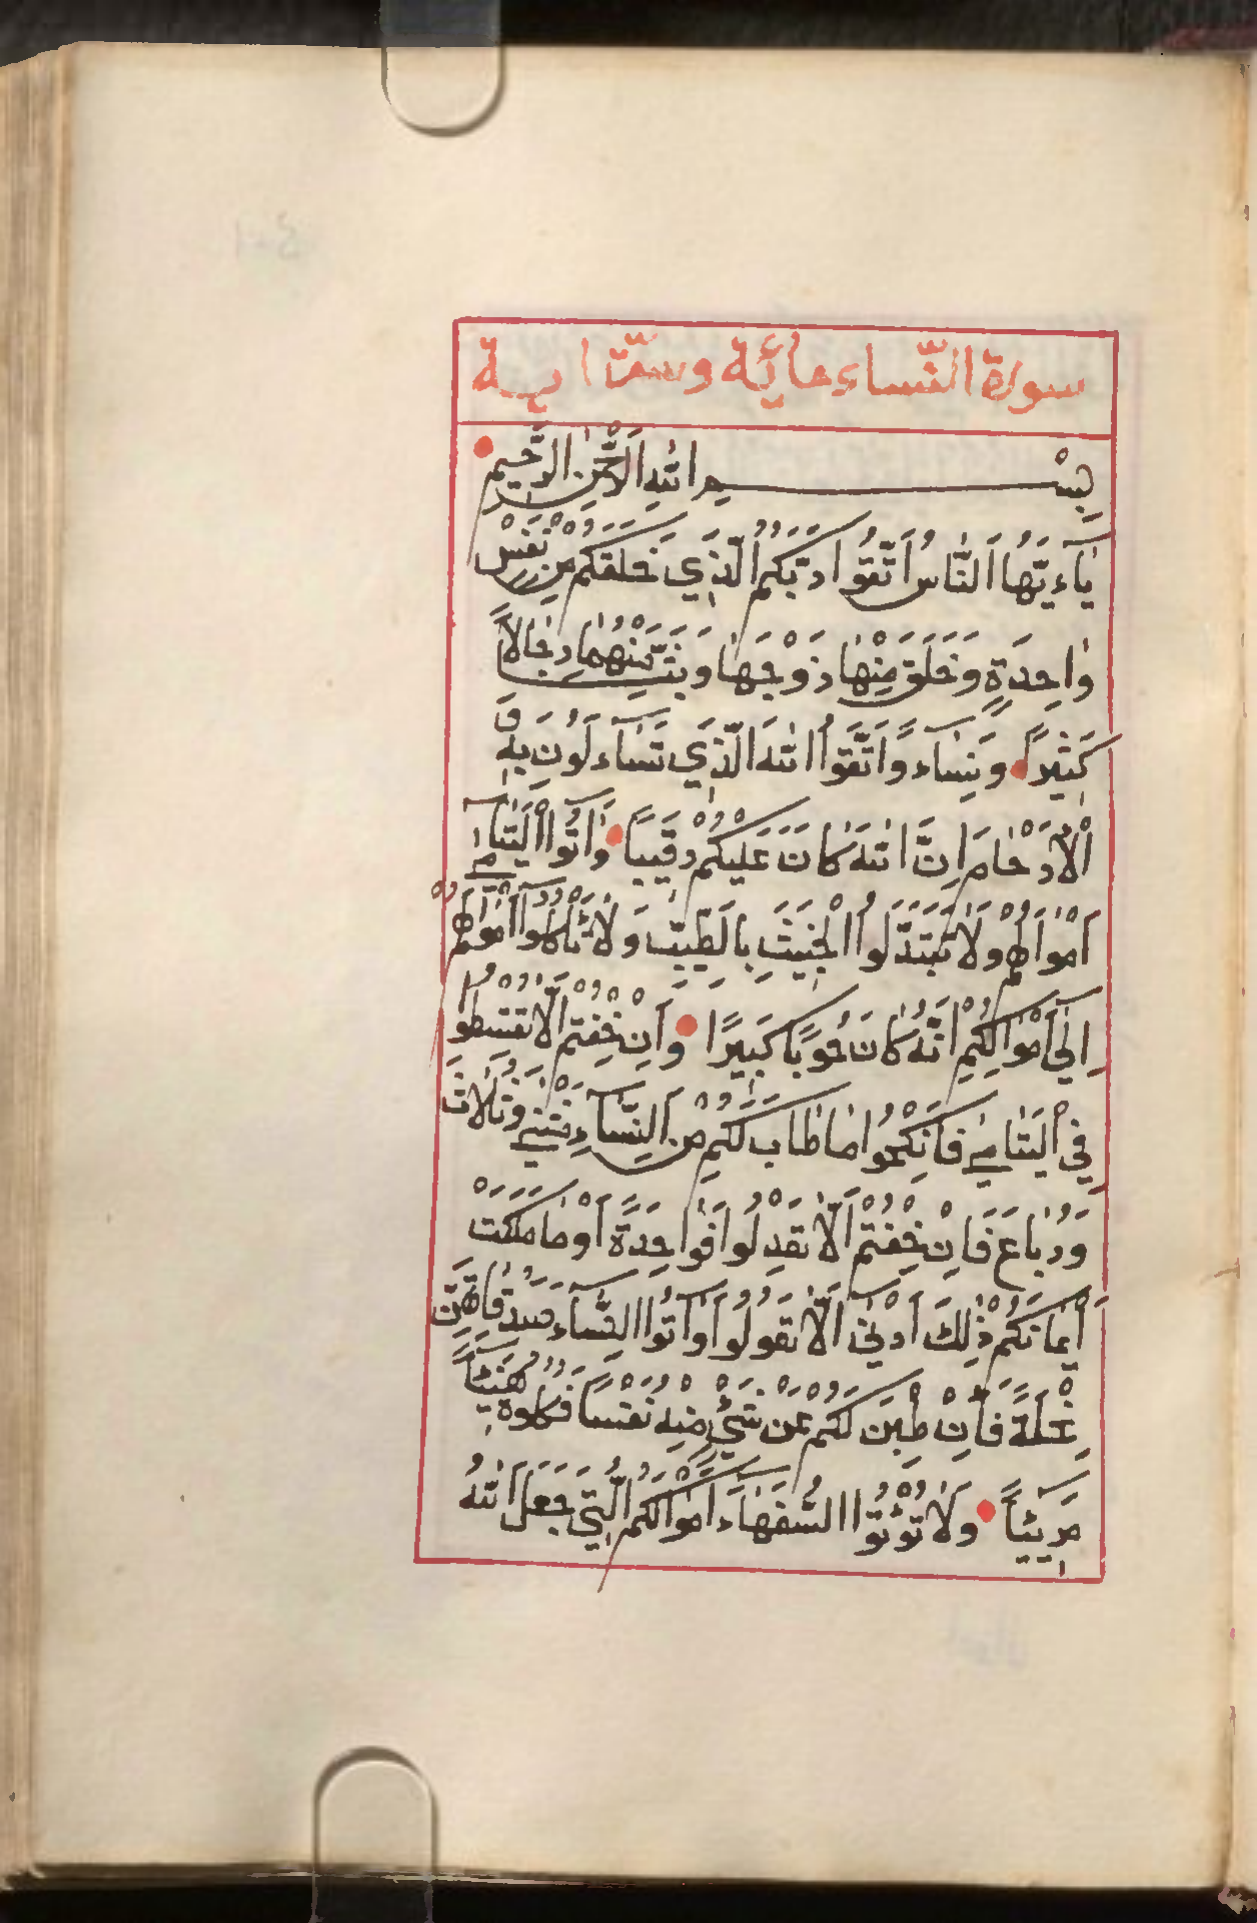 سورة النّساء مائة وستّ اية
بِسْمِ اللهِ الرَّحْمٰنِ الرَّحِيمِ
يٰاءَيُّهَا النّٰاسُ اَتَّقُوا رَبَّكُمُ الَّذِي خَلَقَكُمْ مِنْ نَفْسٍ
وٰاحِدَةٍ وَخَلَقَ مِنْهٰا زَوْجَهٰا وَبَثَّ مِنْهُمٰا رِجٰالاً
كَثِيرًا وَنِسٰاءً وَاَتَّقُوا اللهَ الَّذِي تَسٰاءَلُونَ بِهِ
وَالْاَرْحٰامَ اِنَّ اللهَ كٰانَ عَلَيْكُمْ رَقِيبًا وَآتُوا الْيَتٰامىٰ
اَمْوٰالَهُمْ وَلٰا تَتَبَدَّلُوا الْخَبِيثَ بِالطَّيِّبِ وَلٰا تَأْكُلُوا اَمْوٰالَهُمْ
اِلىٰ اَمْوٰالِكُمْ اِنَّهُ كٰانَ حُوبًا كَبِيرًا وَاِنْ خِفْتُمْ اَلّٰا تُقْسِطُوا
فِي الْيَتٰامىٰ فَانْكِحُوا مٰا طٰابَ لَكُمْ مِنَ النِّسٰاءِ مَثْنىٰ وَثُلٰاثَ
وَرُبٰاعَ فَاِنْ خِفْتُمْ اَلّٰا تَعْدِلُوا فَوٰاحِدَةً اَوْ مٰا مَلَكَتْ
اَيْمٰانُكُمْ ذٰلِكَ اَدْنىٰ اَلّٰا تَعُولُوا وَآتُوا النِّسٰاءَ صَدُقٰاتِهِنَّ
نِحْلَةً فَاِنْ طِبْنَ لَكُمْ عَنْ شَيْءٍ مِنْهُ نَفْسًا فَكُلُوهُ هَنِيئًا
مَرِيئًا وَلٰا تُؤْتُوا السُّفَهٰاءَ اَمْوٰالَكُمُ الَّتِي جَعَلَ اللهُ